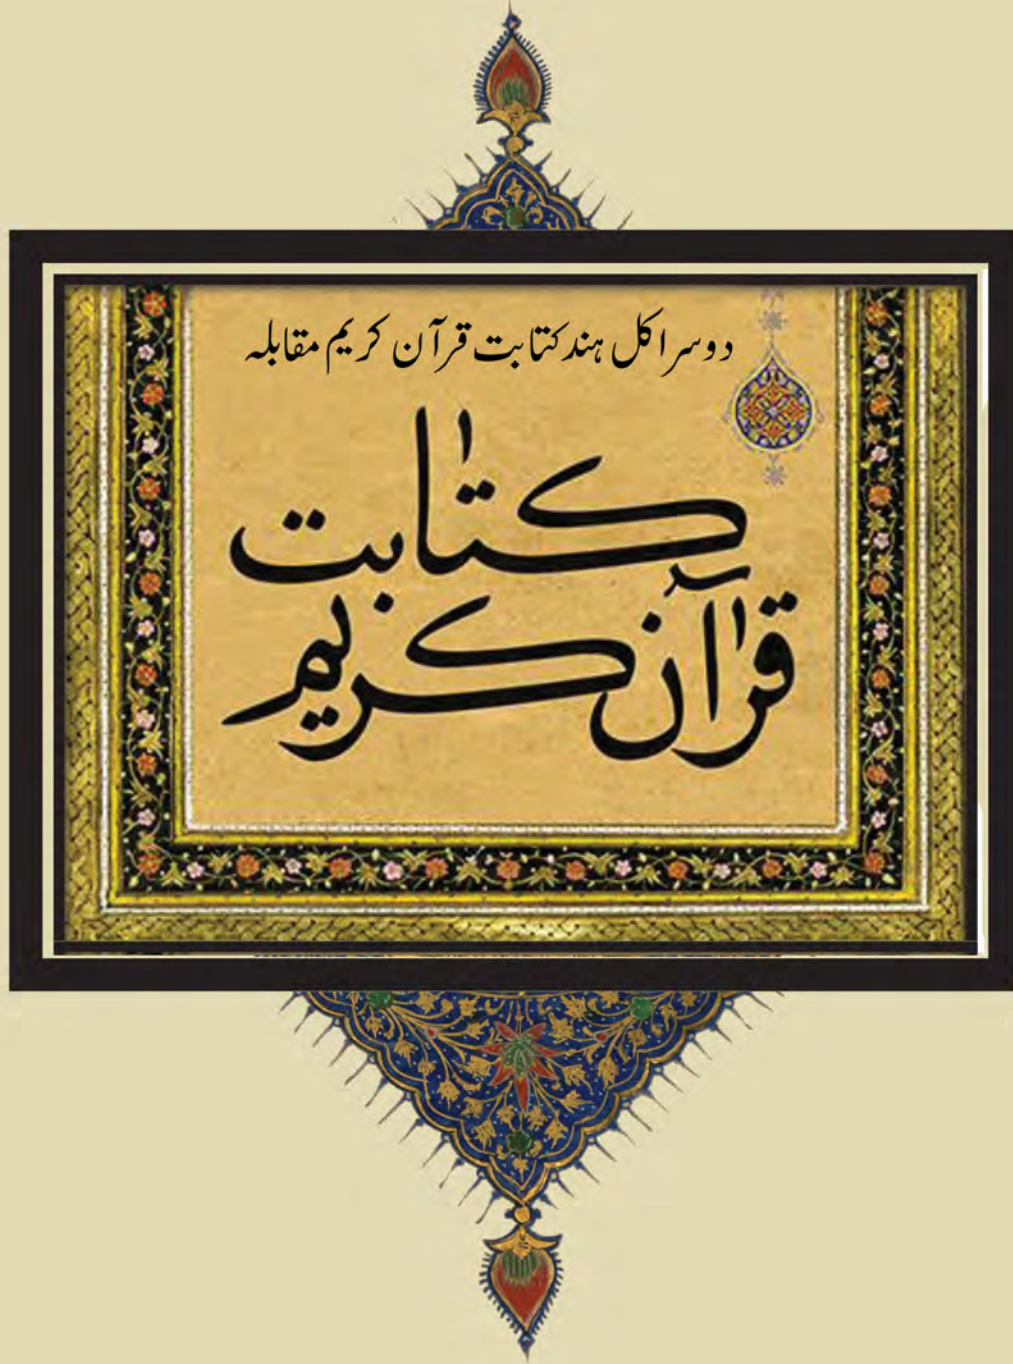 دوسرا کل ہند کتابت قرآن کریم مقابلہ
کتابت
قرآن کریم